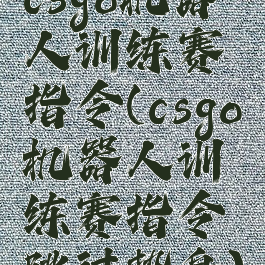 csgo机器
人训练赛
指令(csgo
机器人训
练赛指令